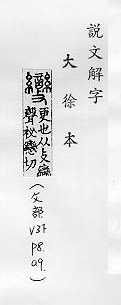 說文解字
大徐本
變 更也从攴䜌
聲祕戀切
(攵部 V3下 P8. a9.)